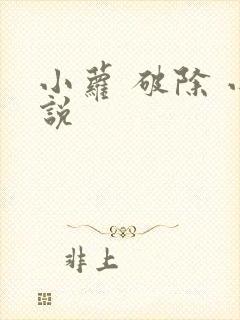 小蘿 破除 小
說
非上